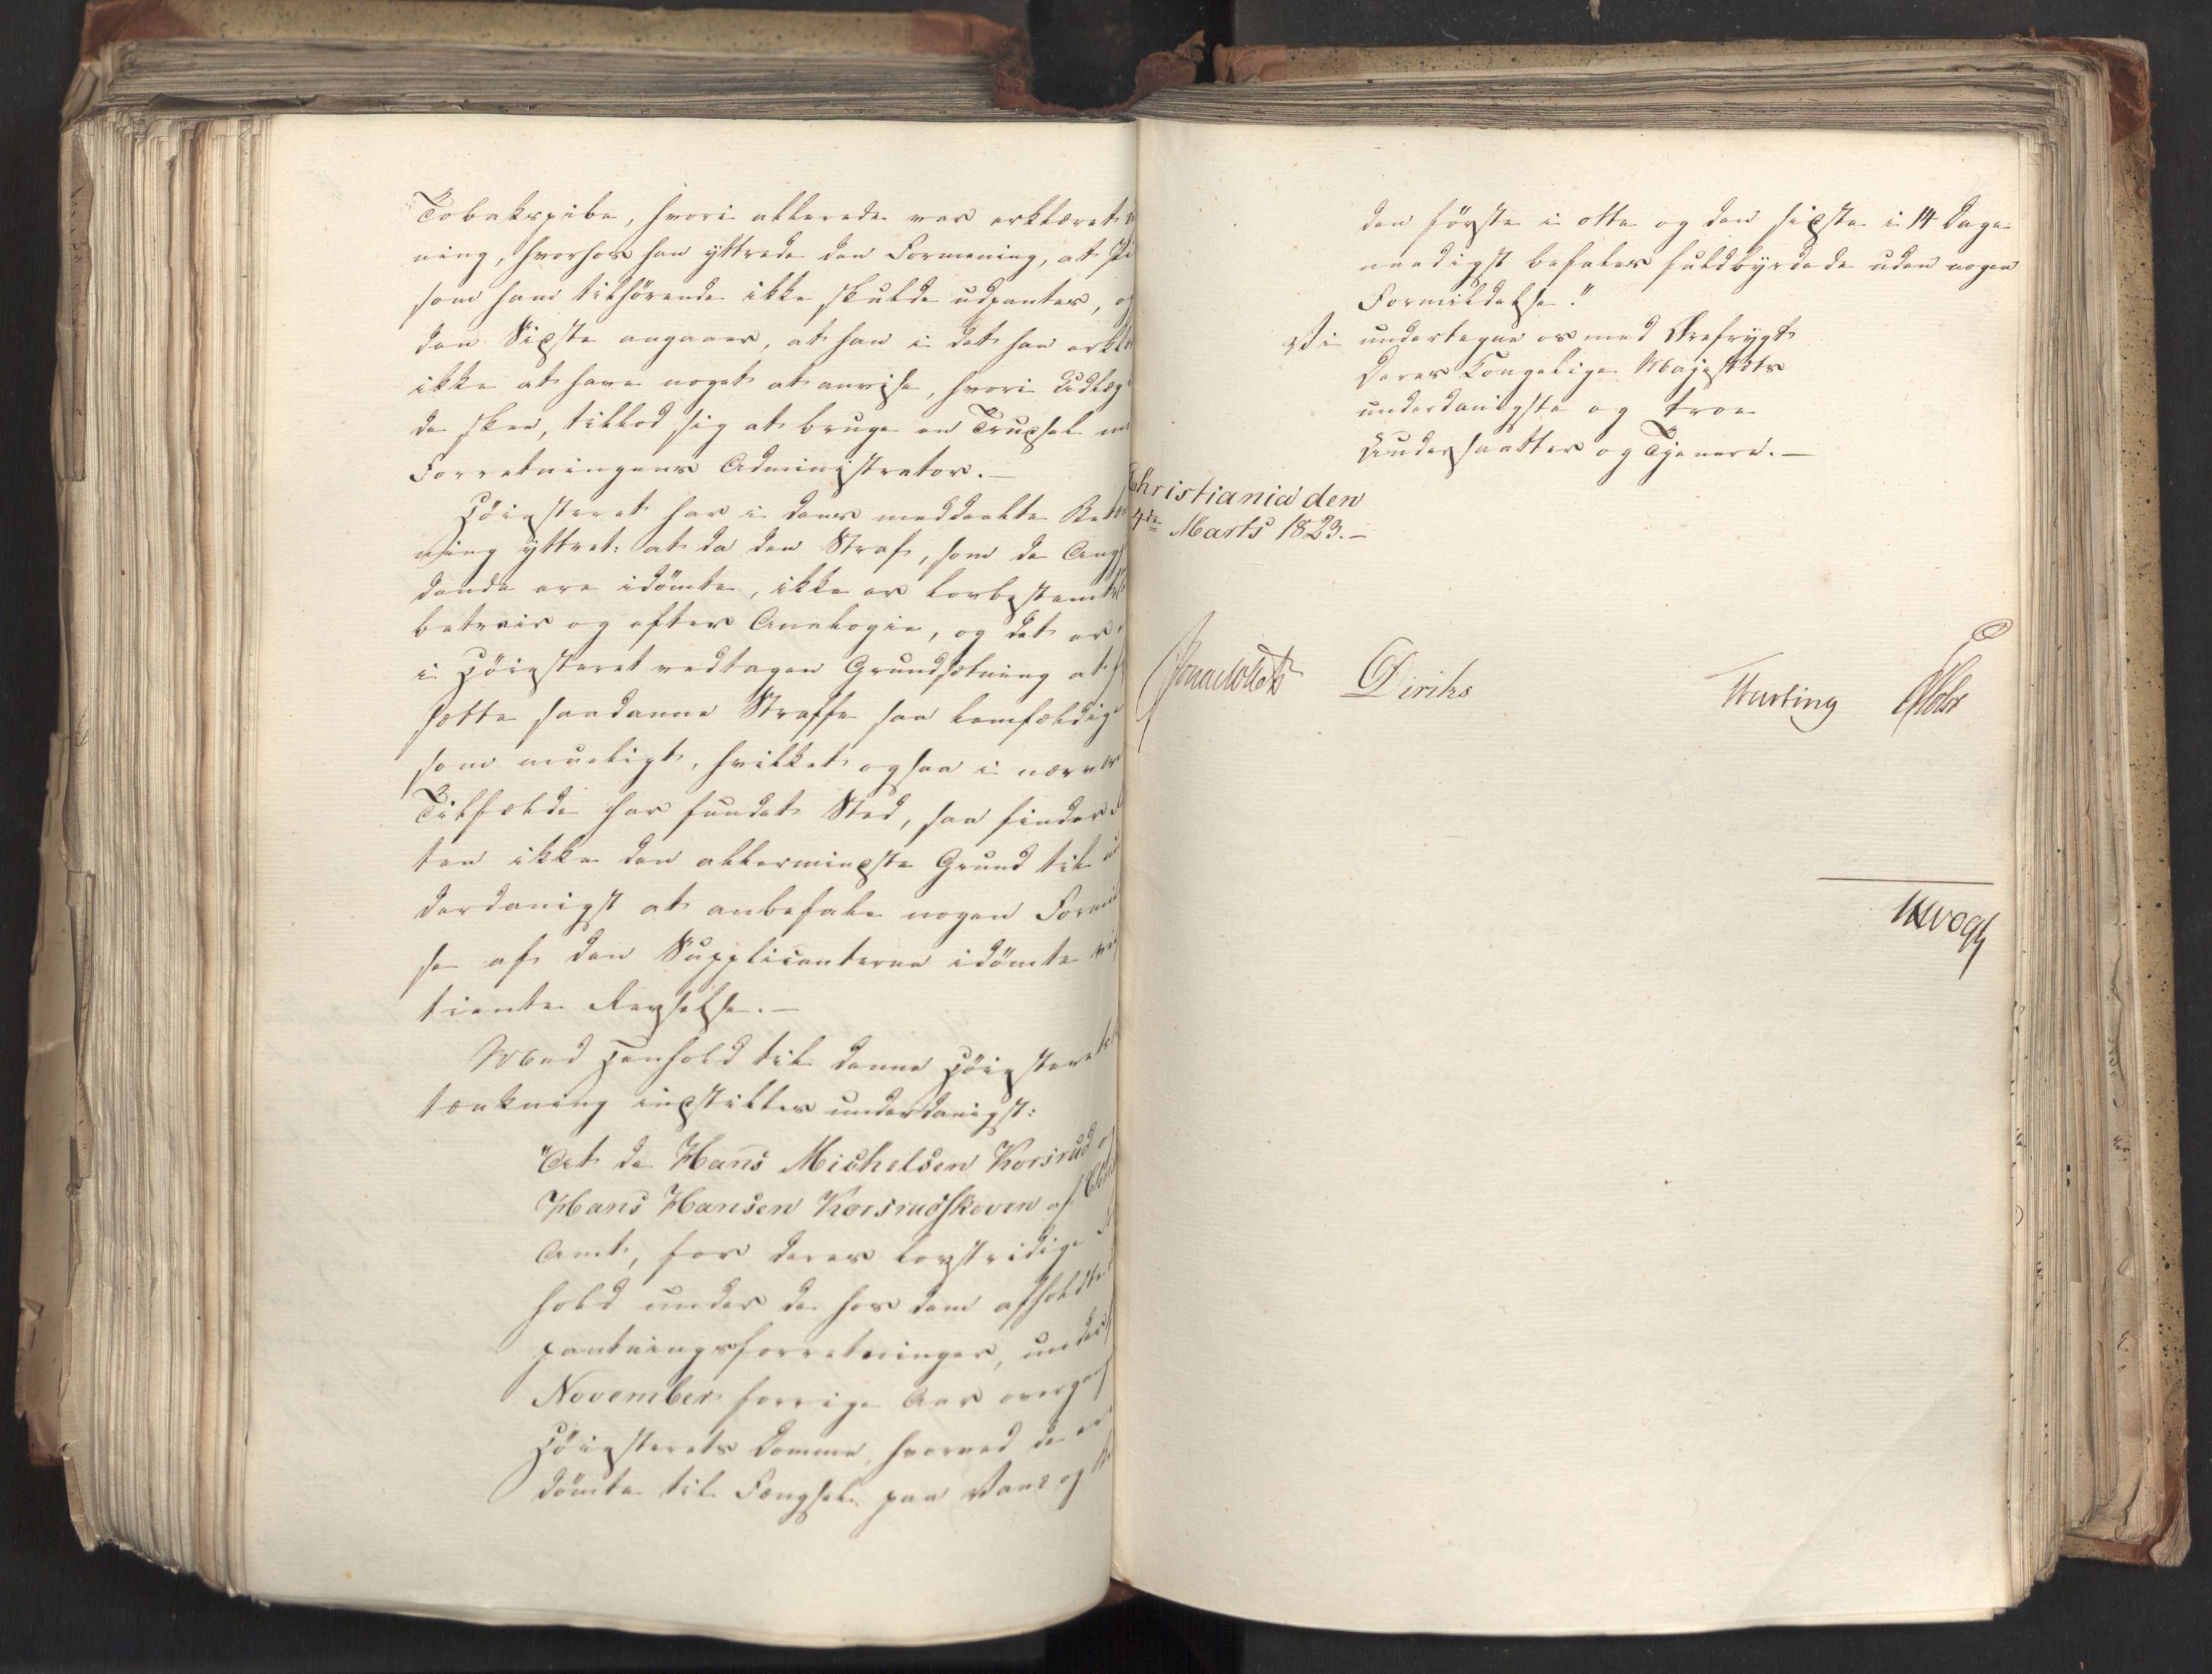 Tobakspibe, hvori allerede var erklæret
ning, hvorhos han yttrede den Formening, at
som ham tilhørende ikke skulde udpantes, og
den Sidste angaaer, at han i det han erklæ
ikke at have noget at anvise, hvori Udlæg
de skee, tillod sig at bruge en Trudsel mo
Forretningens Administrator. —
Høiesteret har i dens meddeelte Betæ
ning yttret: at da den Straf, som de Ang
dende ere idømte, ikke er lovbestemt,
betvis og efter Analogie, og det er
i Høiesteret vedtagen Grundsætning at
sætte saadanne Straffe saa lemfældige
som mueligt, hvilket ogsaa i nærvæ
Tilfælde har fundet Sted, saa finder
ten ikke den allermindste Grund til un
derdanigst at anbefale nogen Formil
se af den Supplicanterne idømte
tiente Revselse. —
Med Henhold til denne Høiesterets
tænkning indstilles underdanigst:
"At de Hans Michelsen Korsrud og
Hans Hansen Korsrudskoven af
Amt, for deres lovstridige
hold under de hos dem afholdte
pantningsforretninger, under
November forrige Aar overgang
Høiesterets Domme, hvorved de er
dømte til Fængsel paa Vand og
den første i otte og den sidste i 14 Dage
naadigst befales fuldbyrdede uden nogen
Formildelse."
Vi undertegne os med Ærefrygt
Deres Kongelige Majestæts
underdanigste og troe
Undersaatter og Tjenere. —
Christiania den
4de Marts 1823. —
Diriks